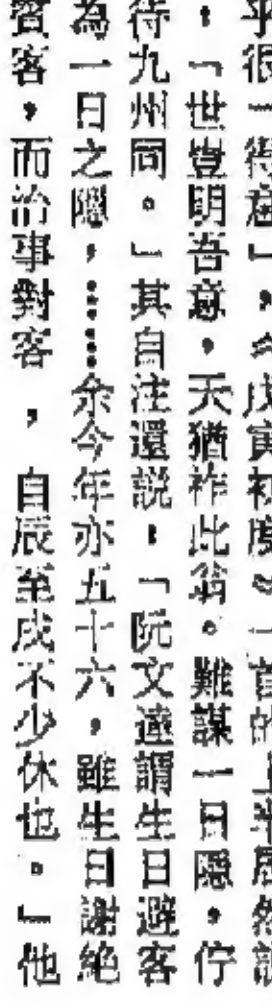 乎很「得意」,《戊寅初度》一首的上半居然說
:「世豈明吾意,天猶祚此翁。難謀一日隱,佇
待九州同。」其自注還説:「阮文達謂生日避客
為一日之隱,……余今年亦五十六,雖生日謝絶
賓客,而治事對客,自辰至戌不少休也。」他